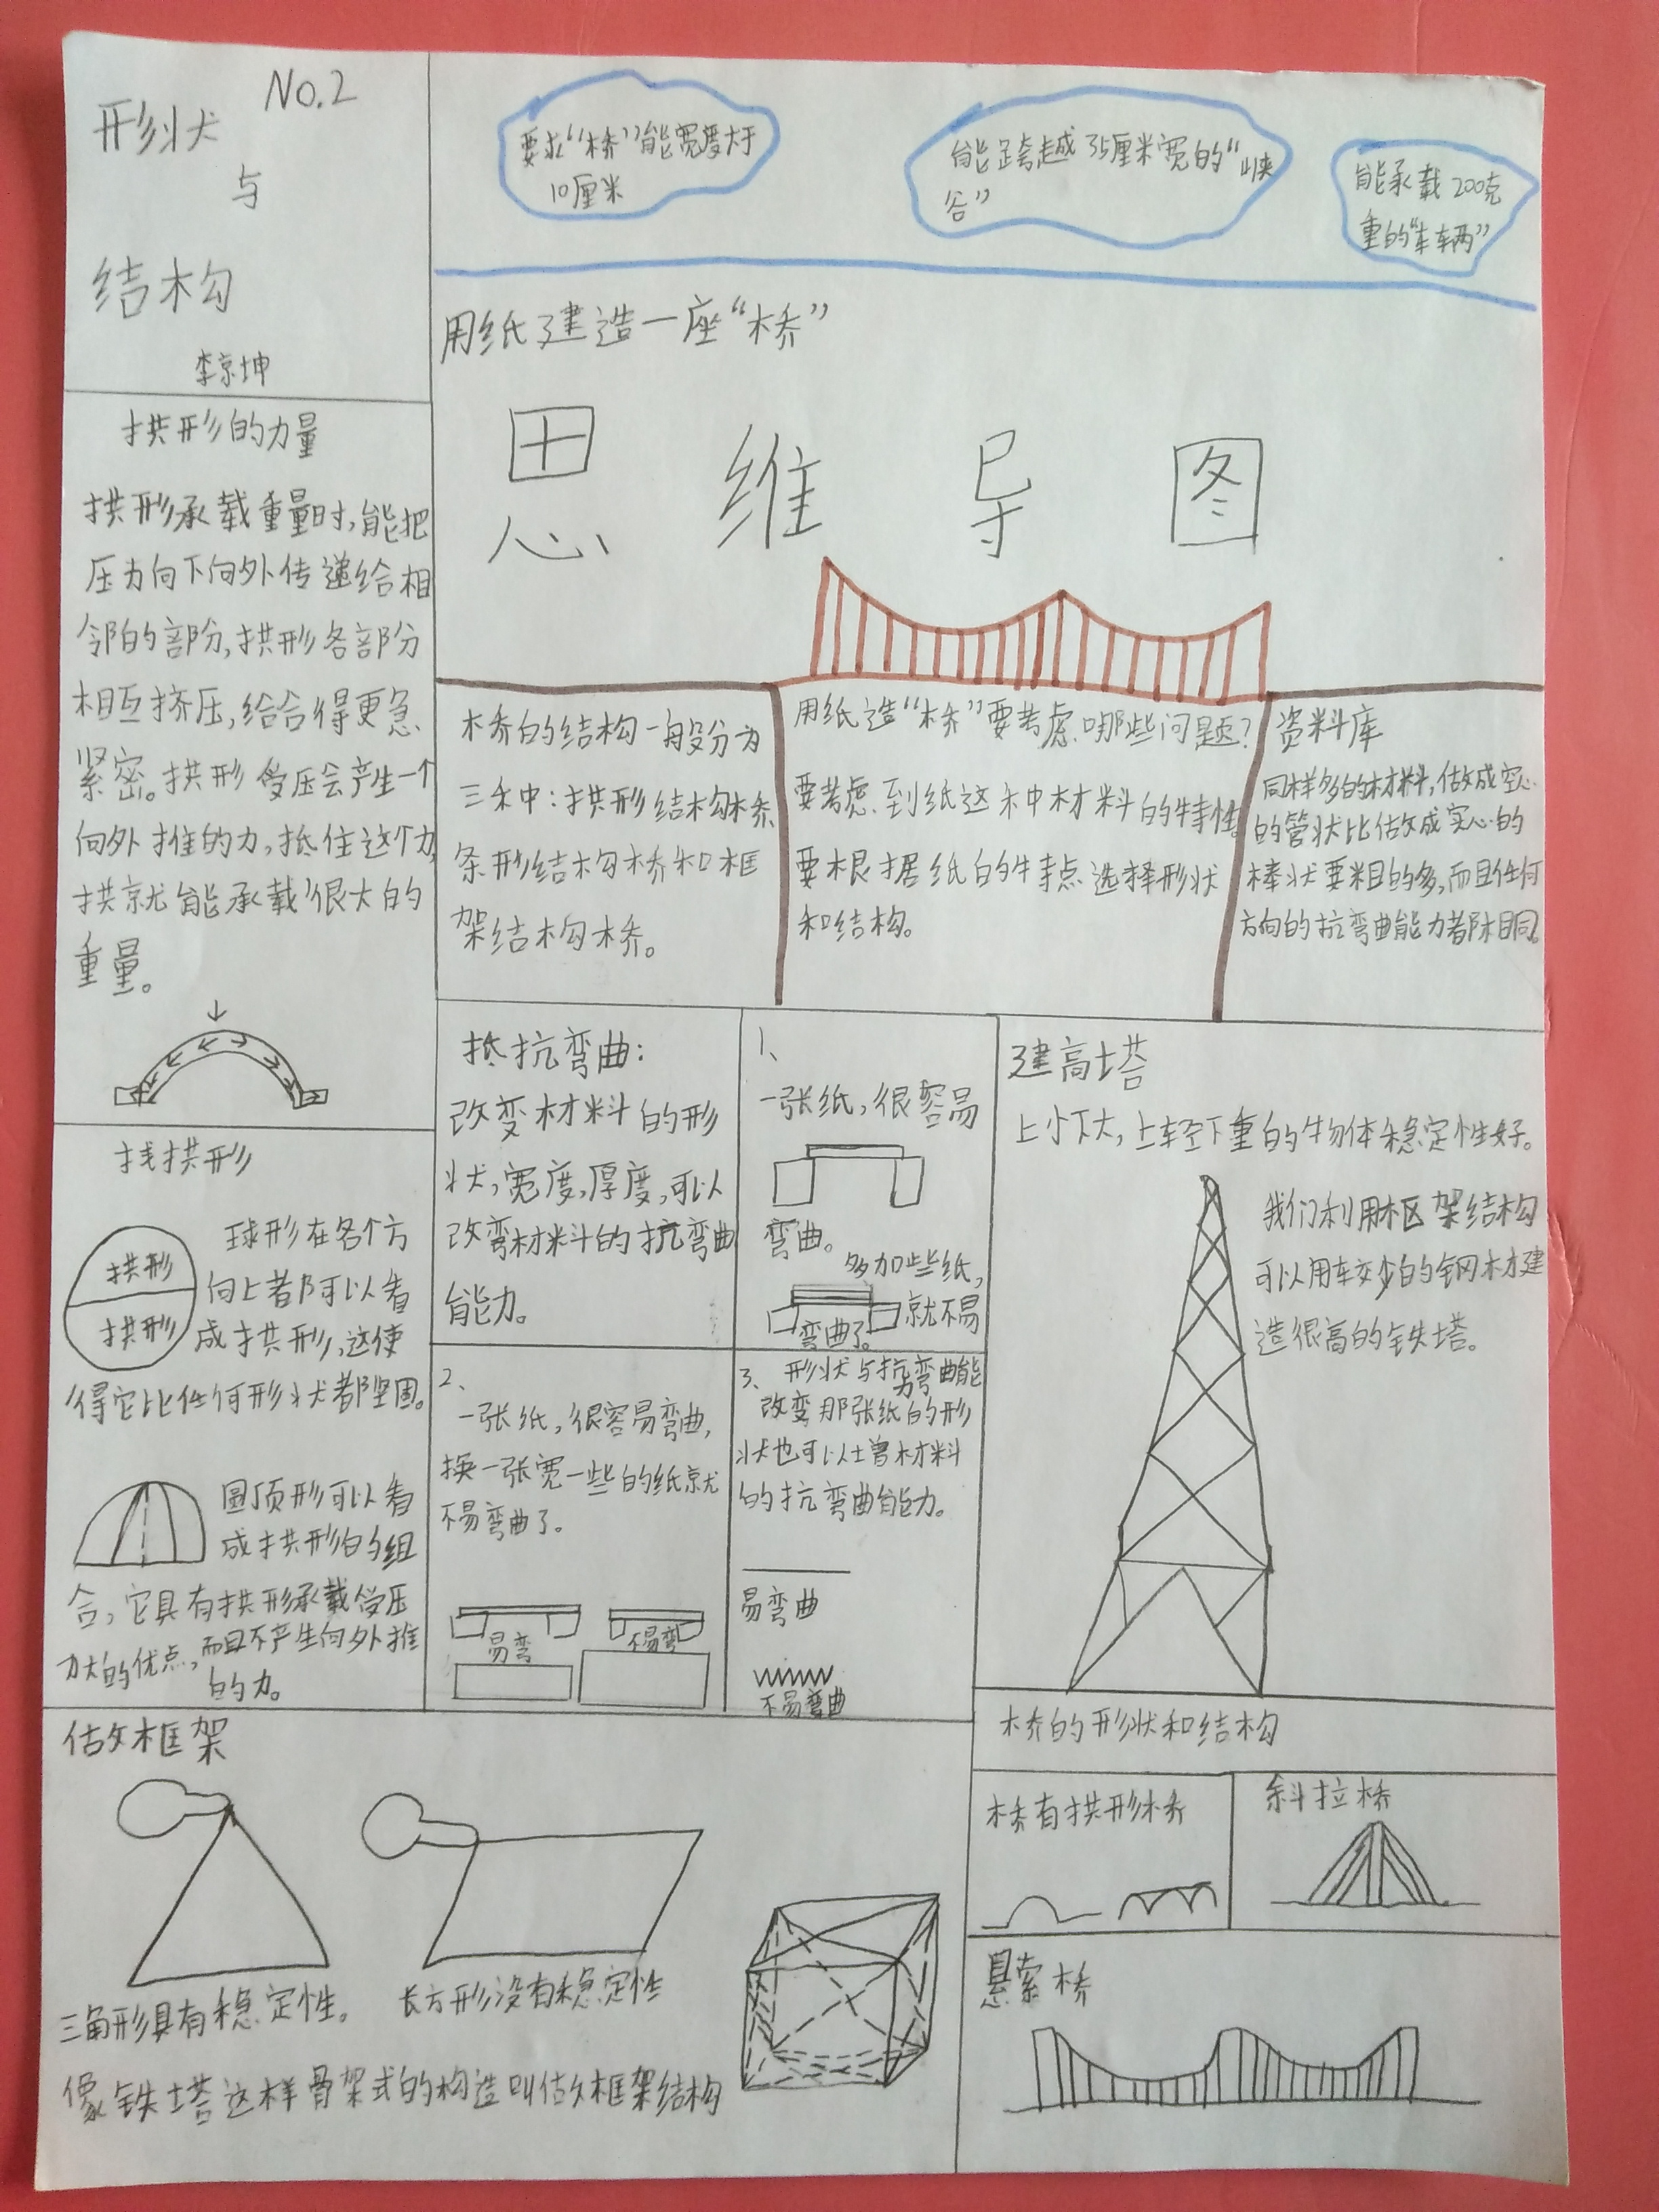 No.2
形状
与
结构
李京坤
要求“桥”能宽度大于
10厘米
能跨越35厘米宽的“峡
谷”
能承载200克
重的“车辆”
用纸建造一座“桥”
思维导图
拱形的力量
拱形承载重量时,能把
压力向下向外传递给相
邻的部分,拱形各部分
相互挤压,结合得更
紧密。拱形受压会产生一个
向外推的力,抵住这个力,
拱就能承载很大的
重量。
桥的结构一般分为
三种:拱形结构桥
条形结构桥和框
架结构桥。
用纸造“桥”要考虑哪些问题?
要考虑到纸这种材料的特性
要根据纸的特点选择形状
和结构。
资料库
同样多的材料,做成空心
的管状比做成实心的
棒状要粗的多,而且任何
方向的抗弯曲能力都相同。
找拱形
拱形
拱形
球形在各个方
向上都可以看
成拱形,这使
得它比任何形状都坚固。
圆顶形可以看
成拱形的组
合,它具有拱形承载受压
力大的优点,而且不产生向外推
的力。
抵抗弯曲:
改变材料的形
状,宽度,厚度,可以
改弯材料的抗弯曲
能力。
1、
一张纸,很容易
弯曲。
多加些纸,
就不易
弯曲了。
2、
一张纸,很容易弯曲,
换一张宽一些的纸就
不易弯曲了。
易弯
不易弯
3、形状与抗弯曲能力
改变那张纸的形
状也可以增材料
的抗弯曲能力。
易弯曲
不易弯曲
建高塔
上小下大,上轻下重的物体稳定性好。
我们利用框架结构
可以用较少的钢材建
造很高的铁塔。
做框架
三角形具有稳定性。
长方形没有稳定性
像铁塔这样骨架式的构造叫做框架结构
桥的形状和结构
桥有拱形桥
斜拉桥
悬索桥